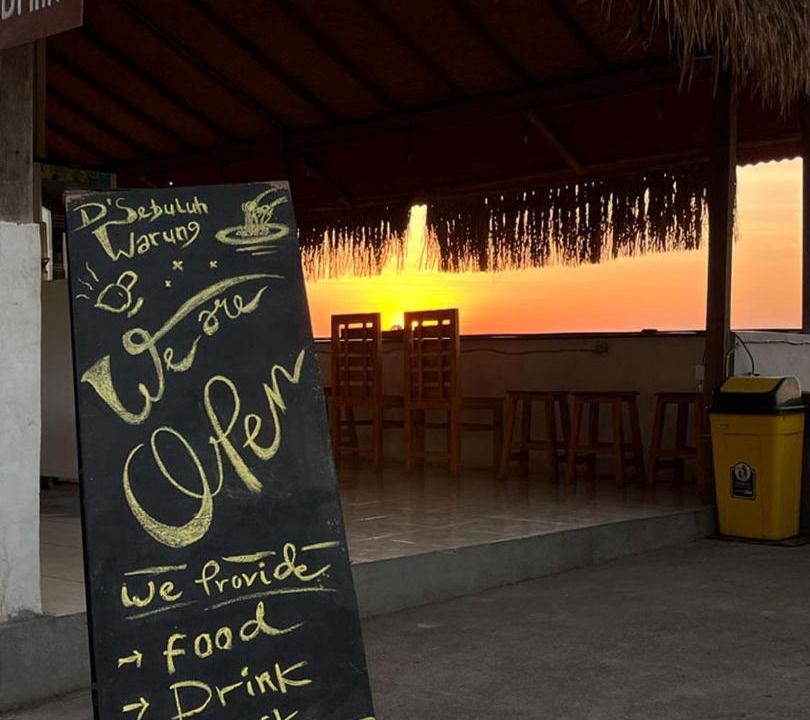 D'Sebuluh
Warung
We are
Open
We Provide
→ Food
→ Drink